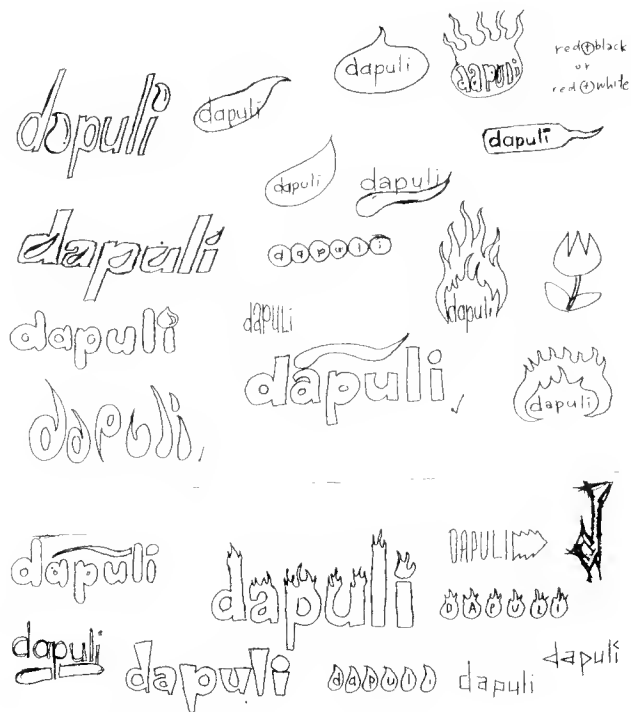 dapuli
dapuli
red + black
or
red + white
dapuli
dapuli
dapuli
dapuli
dapuli
dapuli
dapuli
dapuli
dapuli
dapuli
dapuli
dAPULi
dapuli
dapuli
dapuli
dapuli
dapuli
DAPULI
DAPULI
dapuli
dapuli
dapuli
dapuli
dapuli